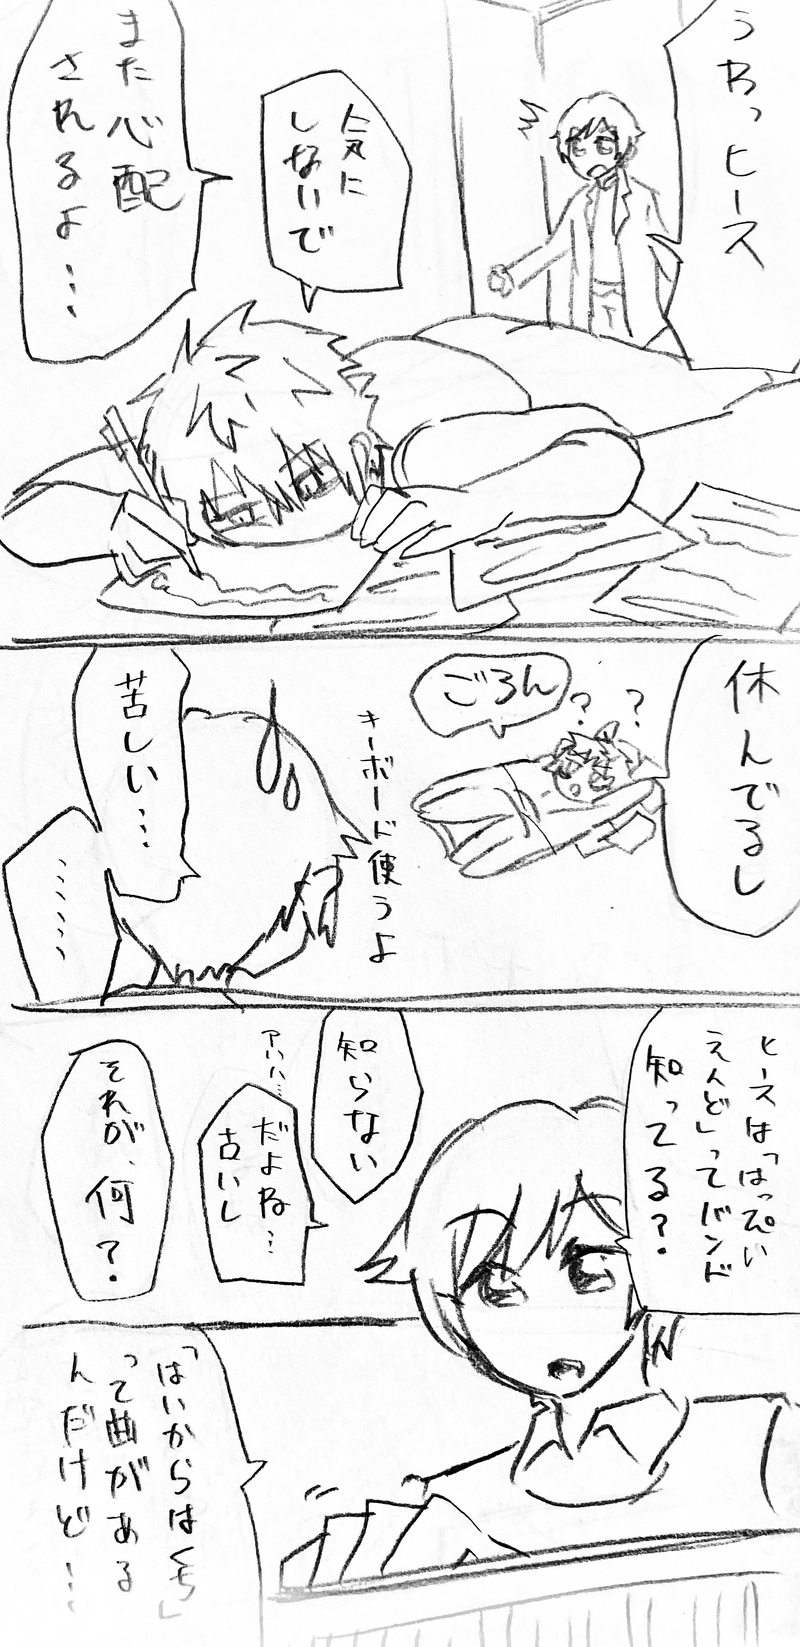 うわっヒース
気に
しないで
また心配
されるよ…
休んでるし
ごろん
？？
キーボード使うよ
苦しい…
……
ヒースは「はっぴい
えんど」ってバンド
知ってる？
知らない
だよね…
古いし
それが、何？
「はいからはくち」
って曲がある
んだけど…